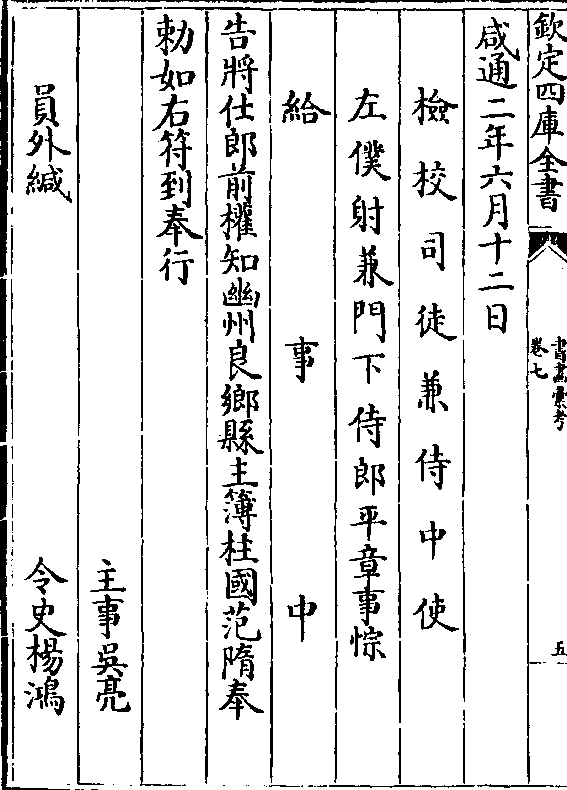 欽定四庫全書
書畫彙考
卷七
五
咸通二年六月十二日
檢校司徒兼侍中使
左僕射兼門下侍郎平章事悰
給事中
告將仕郎前權知幽州良鄉縣主簿柱國范隋奉
勅如右符到奉行
主事吳亮
員外緘 令史楊鴻